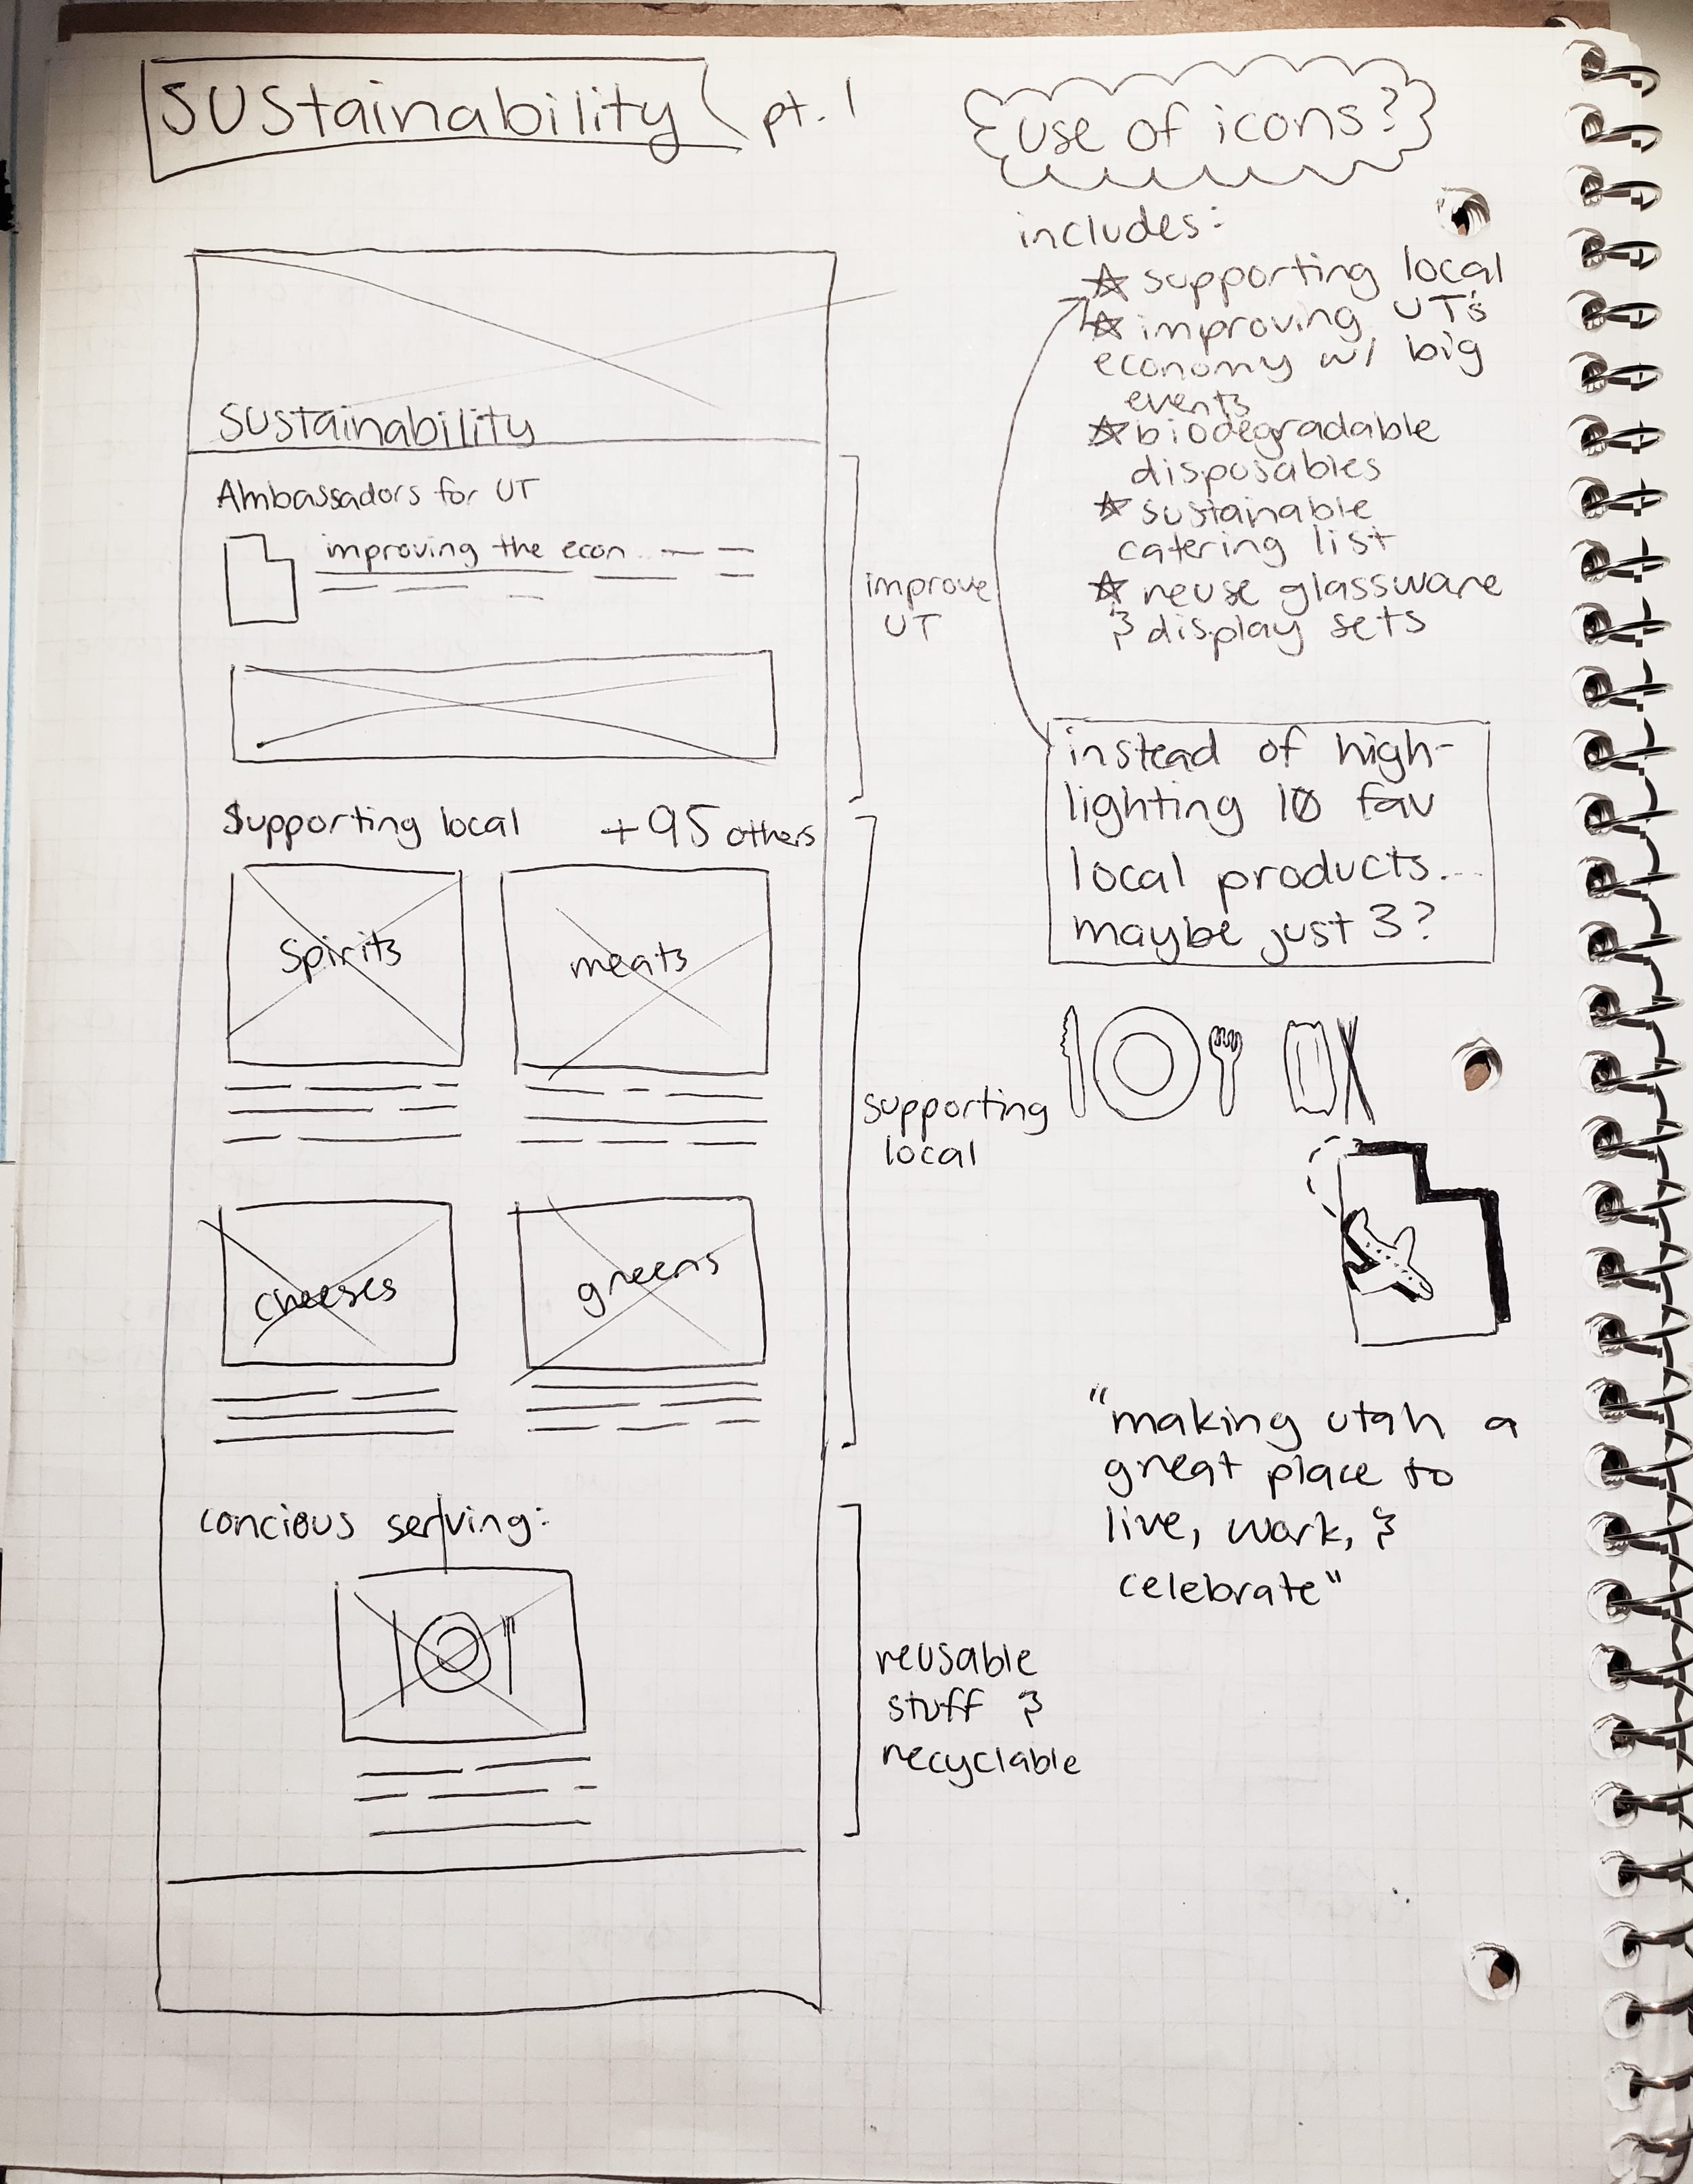 SUStainability pt. 1
use of icons?
includes:
☆ supporting local
☆ improving UT's
economy w/ big
events
☆ biodegradable
disposables
☆ sustainable
catering list
☆ reuse glassware
& display sets
instead of high-
lighting 10 fav
local products...
maybe just 3?
"making utah a
great place to
live, work, &
celebrate"
SUStainability
Ambassadors for UT
improving the econ
improve
UT
Supporting local +95 others
Spirits
meats
cheeses
greens
supporting
local
concious serving:
reusable
stuff &
recyclable